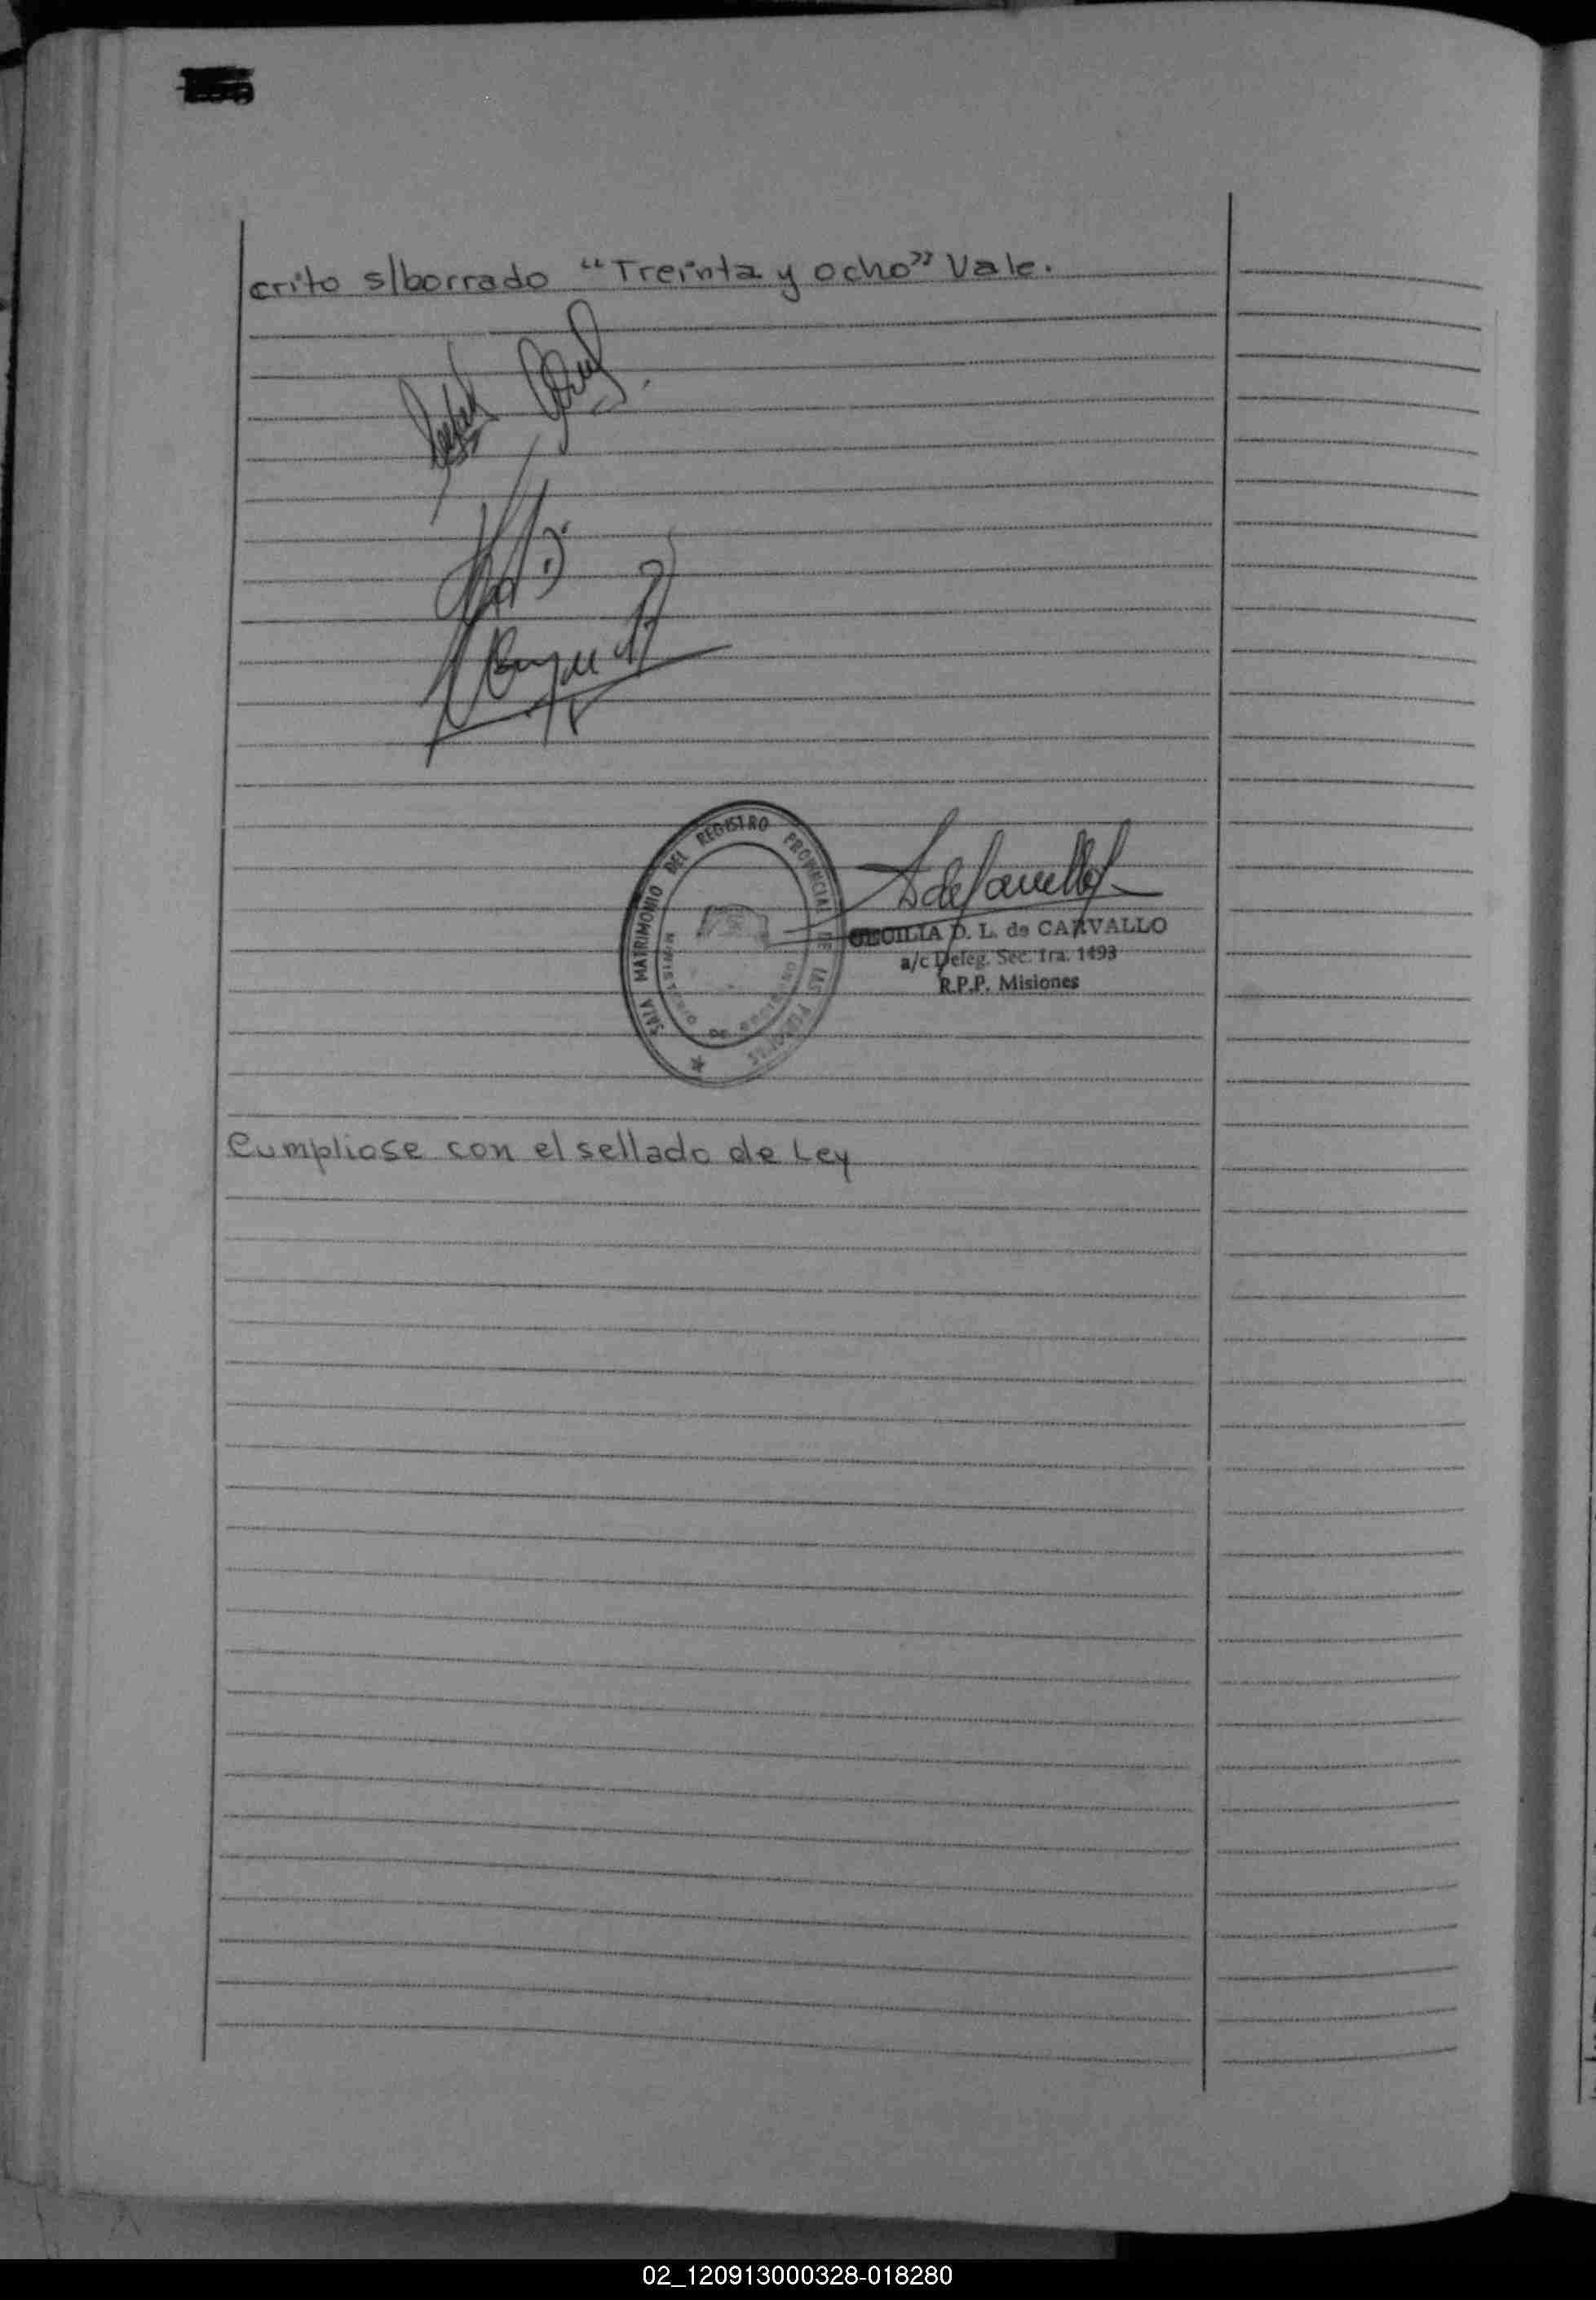 crito s/borrado "Treinta y ocho" Vale.
SALA MATRIMONIO DEL REGISTRO PROVINCIAL DE LAS PERSONAS
CECILIA D. L. de CARVALLO
a/c Deleg. Sec. 1ra. 1493
R.P.P. Misiones
Cumpliose con el sellado de Ley
02_120913000328-018280